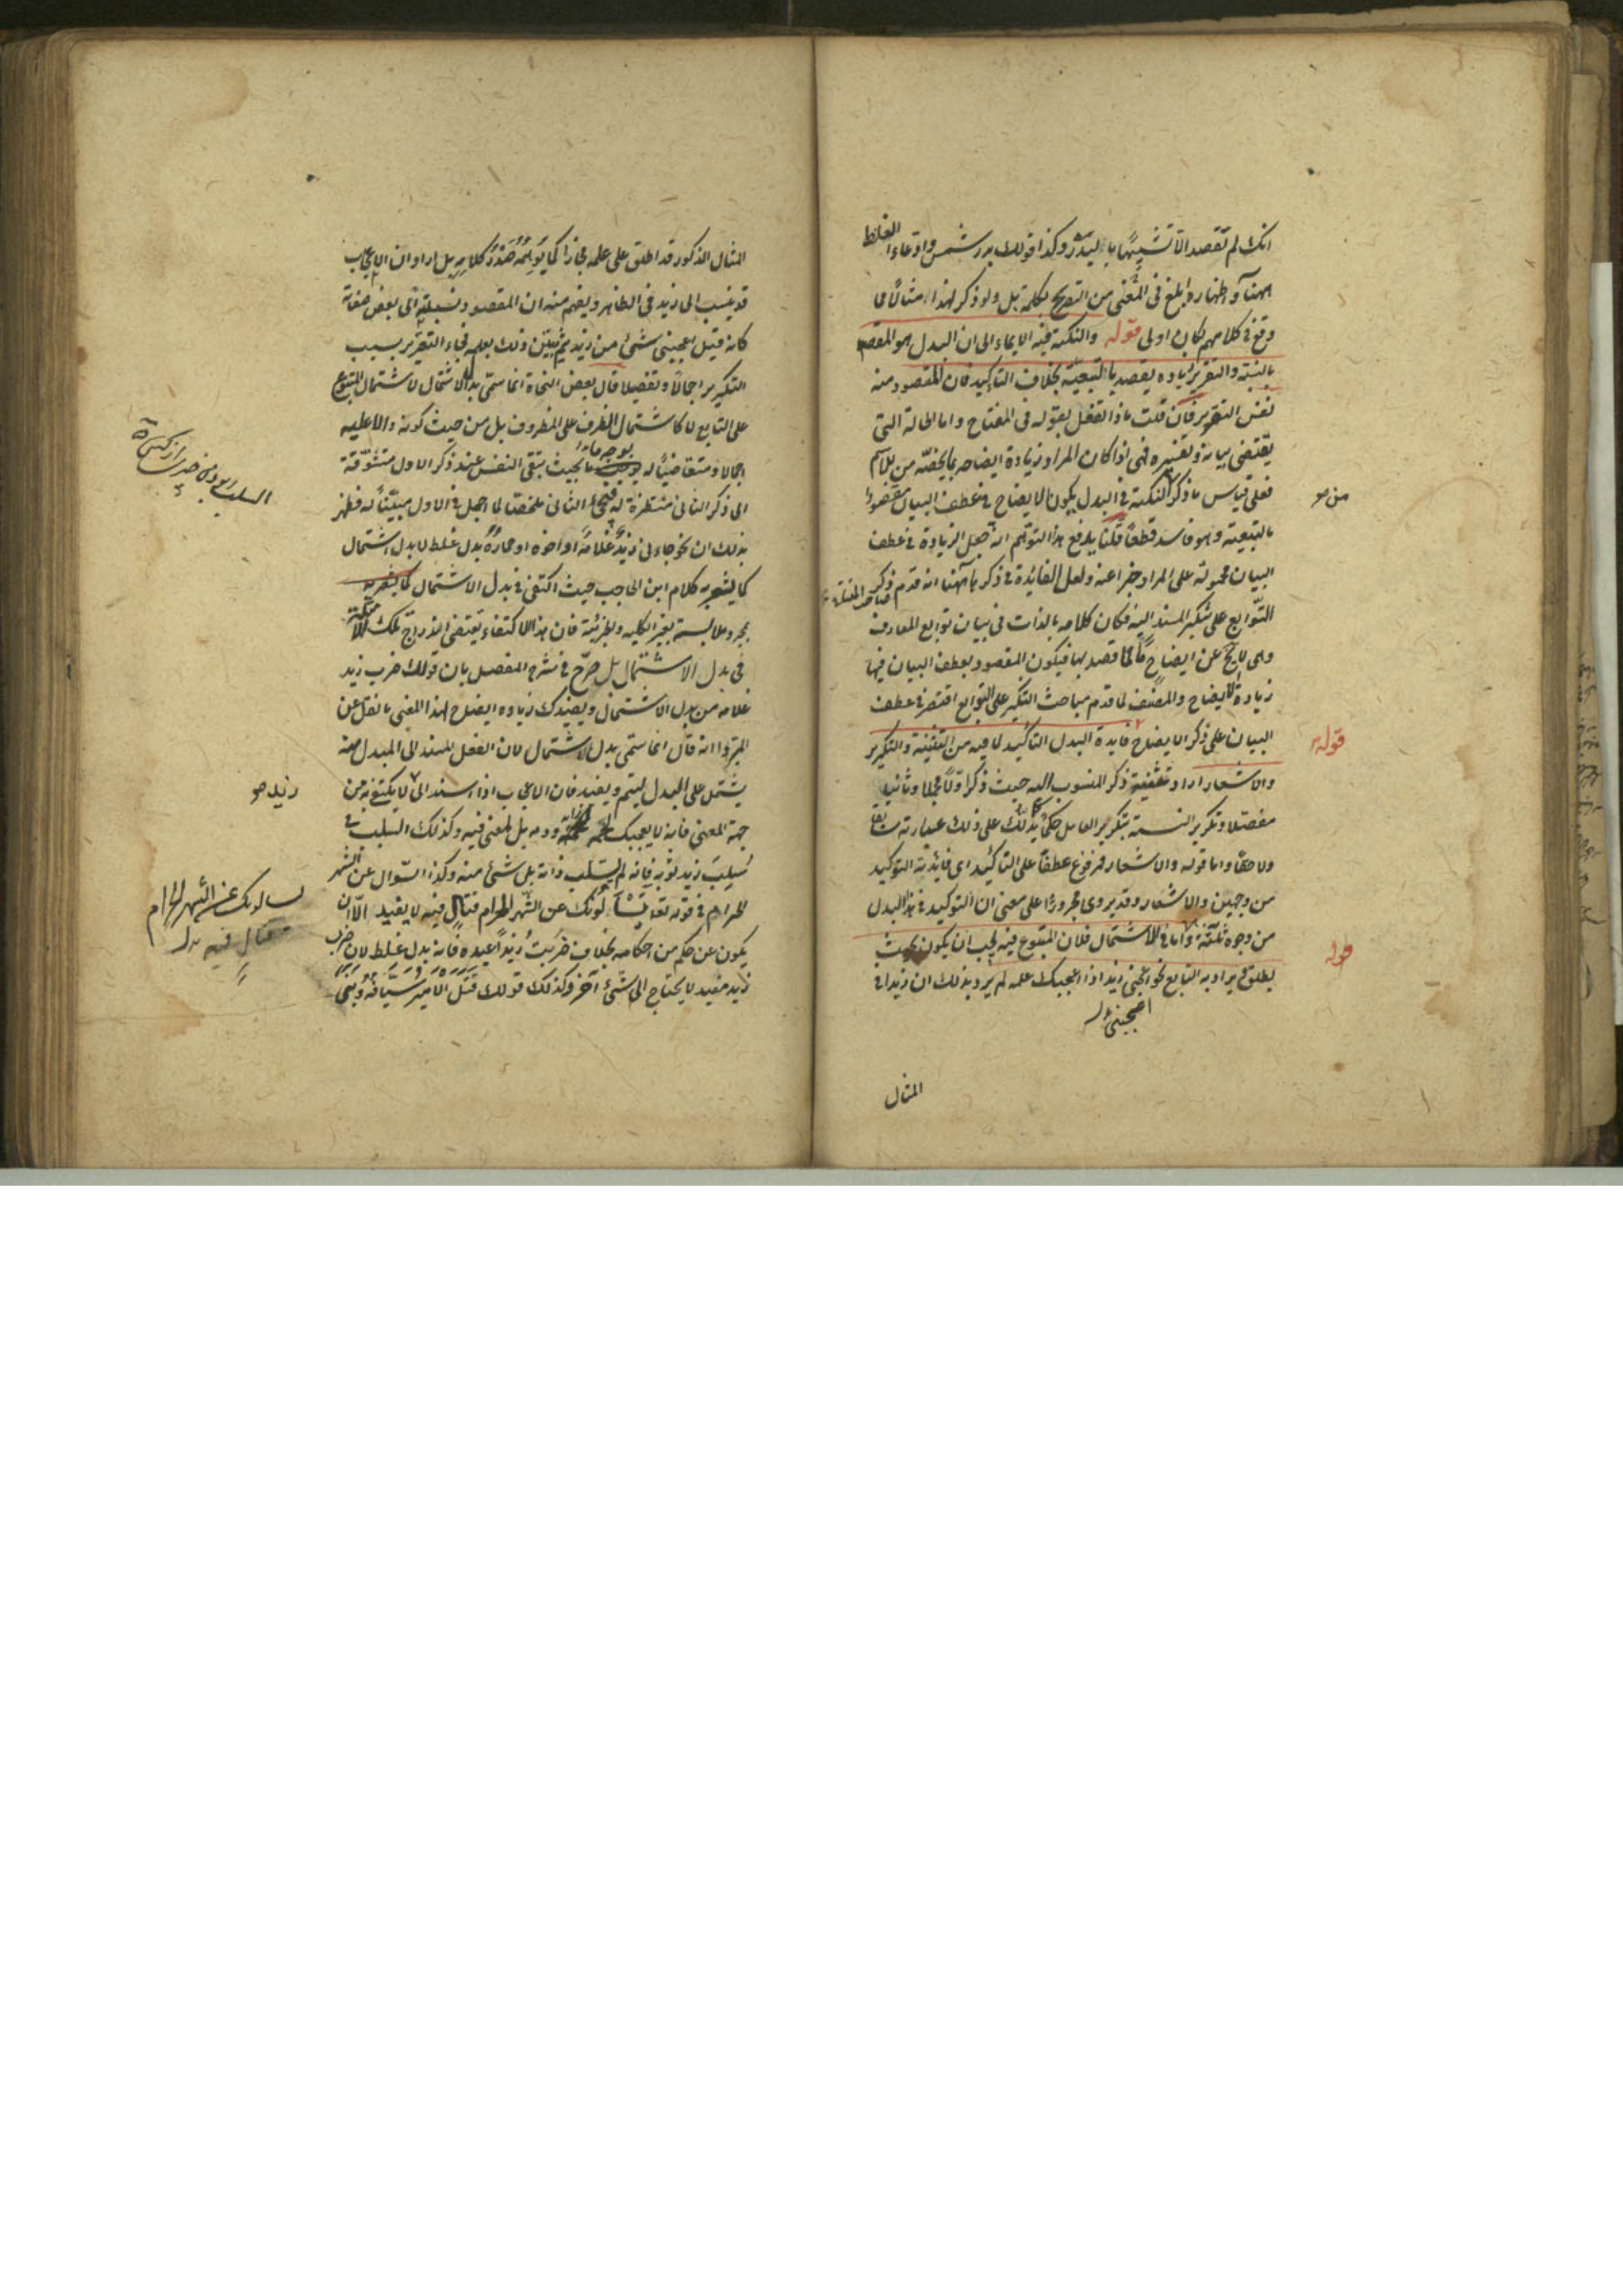 انك لم تقصد الا تشبيهها بالبدر وكذا قولك بدر شمس وادعاء الغلط
ههنا واظهاره ابلغ فى المعنى من التصريح بكلمة بل ولو ذكر لهذا مثالا مما
وقع فى كلامهم لكان اولى قوله والنكتة فيه الايماء الى ان البدل هو المقصود
بالنسبة والتقرير زيادة يقصد بالتبعية بخلاف التأكيد فان المقصود منه
نفس التقرير فان قلت ماذا تفعل بقوله فى المفتاح واما الحالة التى
تقتضى بيانه وتفسيره فهى اذا كان المراد زيادة ايضاحه بما يخصه من الاسم
فعلى قياس ما ذكر من النكتة فى البدل يكون الايضاح فى عطف البيان مقصودا
بالتبعية وهو فاسد قطعا قلنا يدفع هذا التوهم انه جعل الزيادة فى عطف
البيان محمولة على المراد خبرا عنه ولعل الفائدة فى ذكرها ههنا انه قدم ذكر
صاحب المفتاح
التوابع على تنكير المسند اليه فكان كلامه بالذات فى بيان توابع المعارف
وهى لا تخ عن ايضاح ما لما قصد بها فيكون المقصود بعطف البيان فيها
زيادة الايضاح والمصنف لما قدم مباحث التنكير على التوابع اقتصر فى عطف
البيان على ذكر الايضاح قوله فايدة البدل التأكيد لما فيه من التثنية والتكرير
والاشعار اراد بتثنية ذكر المنسوب اليه حيث ذكر اولا مجملا وثانيا
مفصلا وتكرير النسبة بتكرير العامل حكما يدلك على ذلك عبارته سابقا
ولاحقا واما قوله والاشعار فمرفوع عطفا على التأكيد اى فائدته التوكيد
من وجهين والاشعار وقد يروى مجرورا على معنى ان التوكيد فى هذا البدل
من وجوه ثلثة قوله واما فى الاشتمال فلان المتبوع فيه يجب ان يكون بحيث
يطلق ويراد به التابع نحو اعجبنى زيد اذا اعجبك علمه لم يرد بذلك ان زيدا فى
اعجبنى
المثال
المثال المذكور قد اطلق على علمه مجازا كما يوهمه صدر كلامه بل اراد ان الاعجاب
قد ينسب الى زيد فى الظاهر ويفهم منه ان المقصود نسبته الى بعض صفاته
كانه قيل اعجبنى شئ من زيد ثم تبين ذلك بعلمه فجاء التقرير بسبب
التكرير اجمالا وتفصيلا قال بعض النحاة انما سمى بدل الاشتمال لاشتمال المتبوع
على التابع لا كاشتمال الظرف على المظروف بل من حيث كونه دالا عليه
اجمالا ومتقاضيا له بوجه ما بحيث تبقى النفس عند ذكر الاول متشوقة
الى ذكر الثانى منتظرة له فيجئ الثانى ملخصا لما اجمل فى الاول مبينا له فظهر
بذلك ان نحو جاءنى زيد غلامه او اخوه او حماره بدل غلط لا بدل اشتمال
كما يشعر به كلام ابن الحاجب حيث اكتفى فى بدل الاشتمال
بمجرد ملابسة بغير الكلية والجزئية فان هذا الاكتفاء يقتضى اندراج تلك الامثلة
فى بدل الاشتمال بل صرح فى شرح المفصل بان قولك ضرب زيد
غلامه من بدل الاشتمال ويفيدك زيادة ايضاح لهذا المعنى ما نقل عن
المبرد انه قال انما سمى بدل الاشتمال لان الفعل المسند الى المبدل منه
يشتمل على البدل ليتم ويفيد فان الاعجاب اذا اسند الى زيد لا يكتفى به من
جهة المعنى فانه لا يعجبك لحمه ودمه بل لمعنى فيه وكذلك السلب فى
سلب زيد ثوبه فانه لم يسلب ذاته بل شئ منه وكذا السؤال عن الشهر
الحرام فى قوله تعا يسألونك عن الشهر الحرام قتال فيه لا يفيد الا ان
يكون عن حكم من احكامه بخلاف ضربت زيدا عبده فانه بدل غلط لان ضرب
زيد مفيد لا يحتاج الى شئ آخر وكذلك قولك قتل الامير سيافه وبنى
يسألونك عن الشهر الحرام
قتال فيه